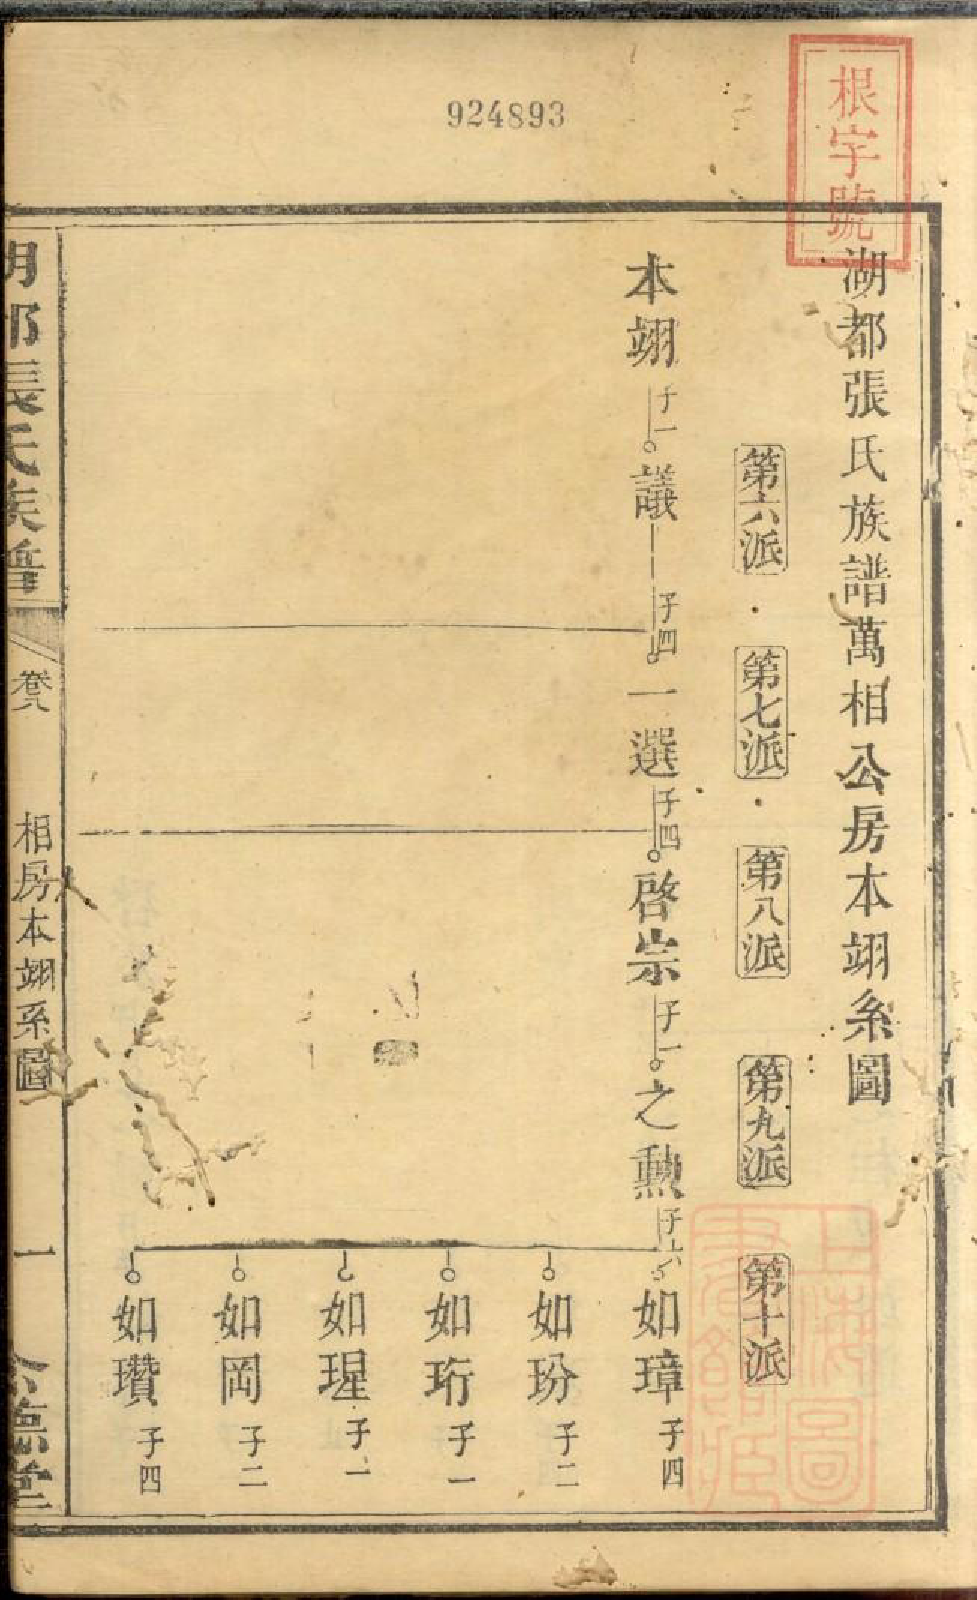 924893
根字號
湖都張氏族譜萬相公房本翊系圖
第六派
第七派
第八派
第九派
第十派
本翊 子一
議 子四
一選 子四
啓宗 子一
之勲 子六
如璋 子四
如玢 子二
如珩 子一
如瑆 子一
如岡 子二
如瓚 子四
湖都張氏族譜
卷八
相房本翊系圖
一
上海圖書館藏